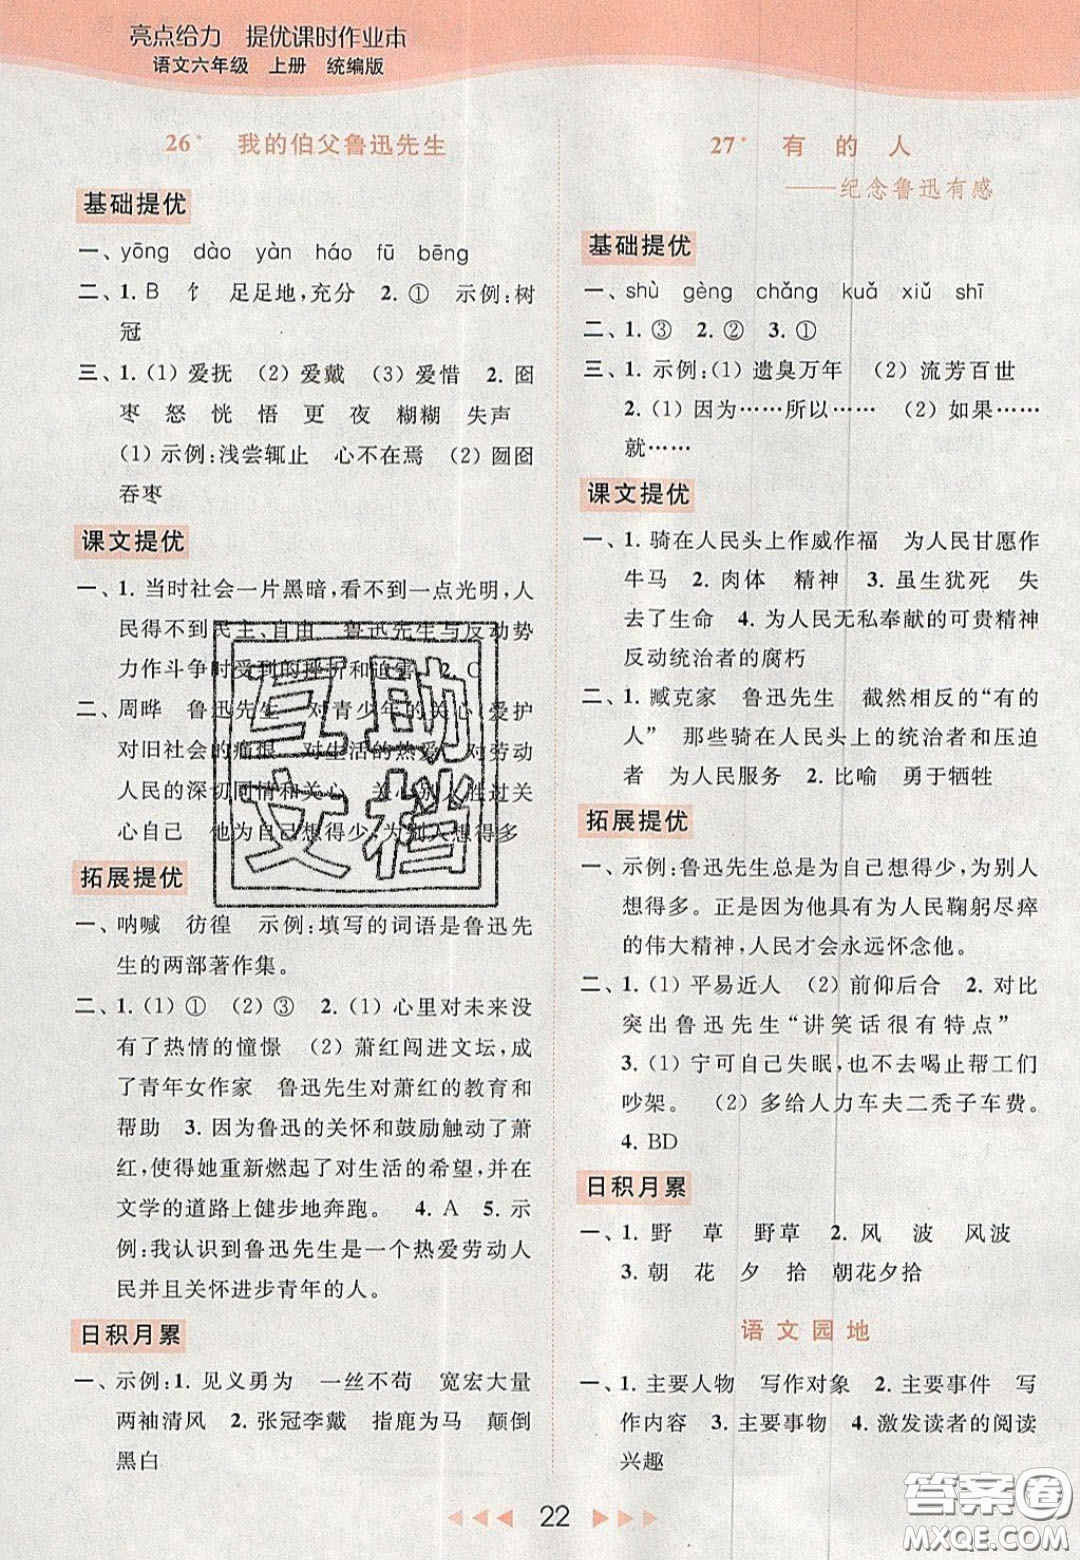 亮点给力 提优课时作业本
语文六年级 上册 统编版
26* 我的伯父鲁迅先生
基础提优
一、yōng dào yàn háo fū bēng
二、1. B 饣 足足地,充分 2. ① 示例:树
冠
三、1.(1)爱抚 (2)爱戴 (3)爱惜 2. 囫
枣 怒 恍 悟 更 夜 糊糊 失声
(1)示例:浅尝辄止 心不在焉 (2)囫囵
吞枣
课文提优
一、1. 当时社会一片黑暗,看不到一点光明,人
民得不到民主、自由 鲁迅先生与反动势
力作斗争时受到的挫折和迫害 2. C
二、周晔 鲁迅先生 对青少年的关心、爱护
对旧社会的痛恨 对生活的热爱 对劳动
人民的深切同情和关心 关心别人胜过关
心自己 他为自己想得少,为别人想得多
拓展提优
一、呐喊 彷徨 示例:填写的词语是鲁迅先
生的两部著作集。
二、1.(1)① (2)③ 2.(1)心里对未来没
有了热情的憧憬 (2)萧红闯进文坛,成
了青年女作家 鲁迅先生对萧红的教育和
帮助 3. 因为鲁迅的关怀和鼓励触动了萧
红,使得她重新燃起了对生活的希望,并在
文学的道路上健步地奔跑。 4. A 5. 示
例:我认识到鲁迅先生是一个热爱劳动人
民并且关怀进步青年的人。
日积月累
一、示例:1. 见义勇为 一丝不苟 宽宏大量
两袖清风 2. 张冠李戴 指鹿为马 颠倒
黑白
27* 有的人
——纪念鲁迅有感
基础提优
一、shù gèng chǎng kuǎ xiǔ shī
二、1. ③ 2. ② 3. ①
三、1. 示例:(1)遗臭万年 (2)流芳百世
2.(1)因为……所以…… (2)如果……
就……
课文提优
一、1. 骑在人民头上作威作福 为人民甘愿作
牛马 2. 肉体 精神 3. 虽生犹死 失
去了生命 4. 为人民无私奉献的可贵精神
反动统治者的腐朽
二、1. 臧克家 鲁迅先生 截然相反的“有的
人” 那些骑在人民头上的统治者和压迫
者 为人民服务 2. 比喻 勇于牺牲
拓展提优
一、示例:鲁迅先生总是为自己想得少,为别人
想得多。正是因为他具有为人民鞠躬尽瘁
的伟大精神,人民才会永远怀念他。
二、1.(1)平易近人 (2)前仰后合 2. 对比
突出鲁迅先生“讲笑话很有特点”
3.(1)宁可自己失眠,也不去喝止帮工们
吵架。 (2)多给人力车夫二秃子车费。
4. BD
日积月累
一、1. 野 草 野草 2. 风 波 风波
3. 朝 花 夕 拾 朝花夕拾
语文园地
一、1. 主要人物 写作对象 2. 主要事件 写
作内容 3. 主要事物 4. 激发读者的阅读
兴趣
22
互助
文档
答案圈
MXQE.COM